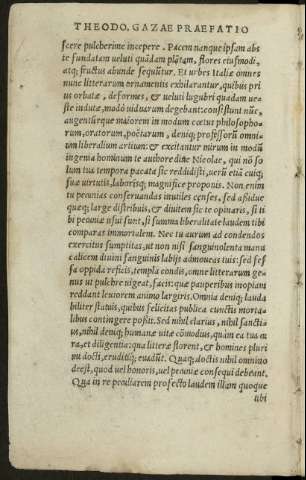 THEODO. GAZAE PRAEFATIO
scere pulcherime incepere. Pacem nanque ipsam abs
te fundatam ueluti quãdam plãtam, flores eiusmodi,
atq; fructus abunde sequũtur. Et urbes Italiæ omnes
nunc litterarum ornamentis exhilarantur, quibus pri
us orbatæ, deformes, & ueluti lugubri quadam ueʃ
ste indutæ, modo uiduarum degebant: consistunt nũc,
augentúrque maiorem in modum cœtus philosopho-
rum, oratorum, poëtarum, deniq; professorũ omni-
um liberalium artium: & excitantur mirum in modũ
ingenia hominum te authore diue Nicolae, qui nõ so
lum tua tempora pacata sic reddidisti, uerũ etiã cuiq;
suæ uirtutis, laborisq; magnifice proponis. Non enim
tu pecunias conseruandas inutiles censes, sed assidue
quæq; large distribuis, & diuitem sic te opinaris, si ti
bi pecuniæ usui sunt, si summa liberalitate laudem tibi
comparas immortalem. Nec tu aurum ad condendos
exercitus sumptitas, ut non nisi sanguinolenta manu
calicem diuini sanguinis labijs admoueas tuis: sed sef
sa oppida reficis, templa condis, omne litterarum ge-
nus ut pulchre uigeat, facis: quæ pauperibus inopiam
reddant leuiorem animo largiris. Omnia deniq; lauda
biliter statuis, quibus felicitas publica cunctis morta-
libus contingere possit. Sed nihil clarius, nihil sanctiʃ
us, nihil deniq; humanæ uitæ cõmodius, quàm ea tua cu
ra, et diligentia: qua litteræ florent, & homines pluri
mi docti, eruditiq; euadũt. Quæq; doctis nihil omnino
deest, quod uel honoris, uel pecuniæ consequi debeant.
Qua in re peculiarem profecto laudem illam quoque
tibi